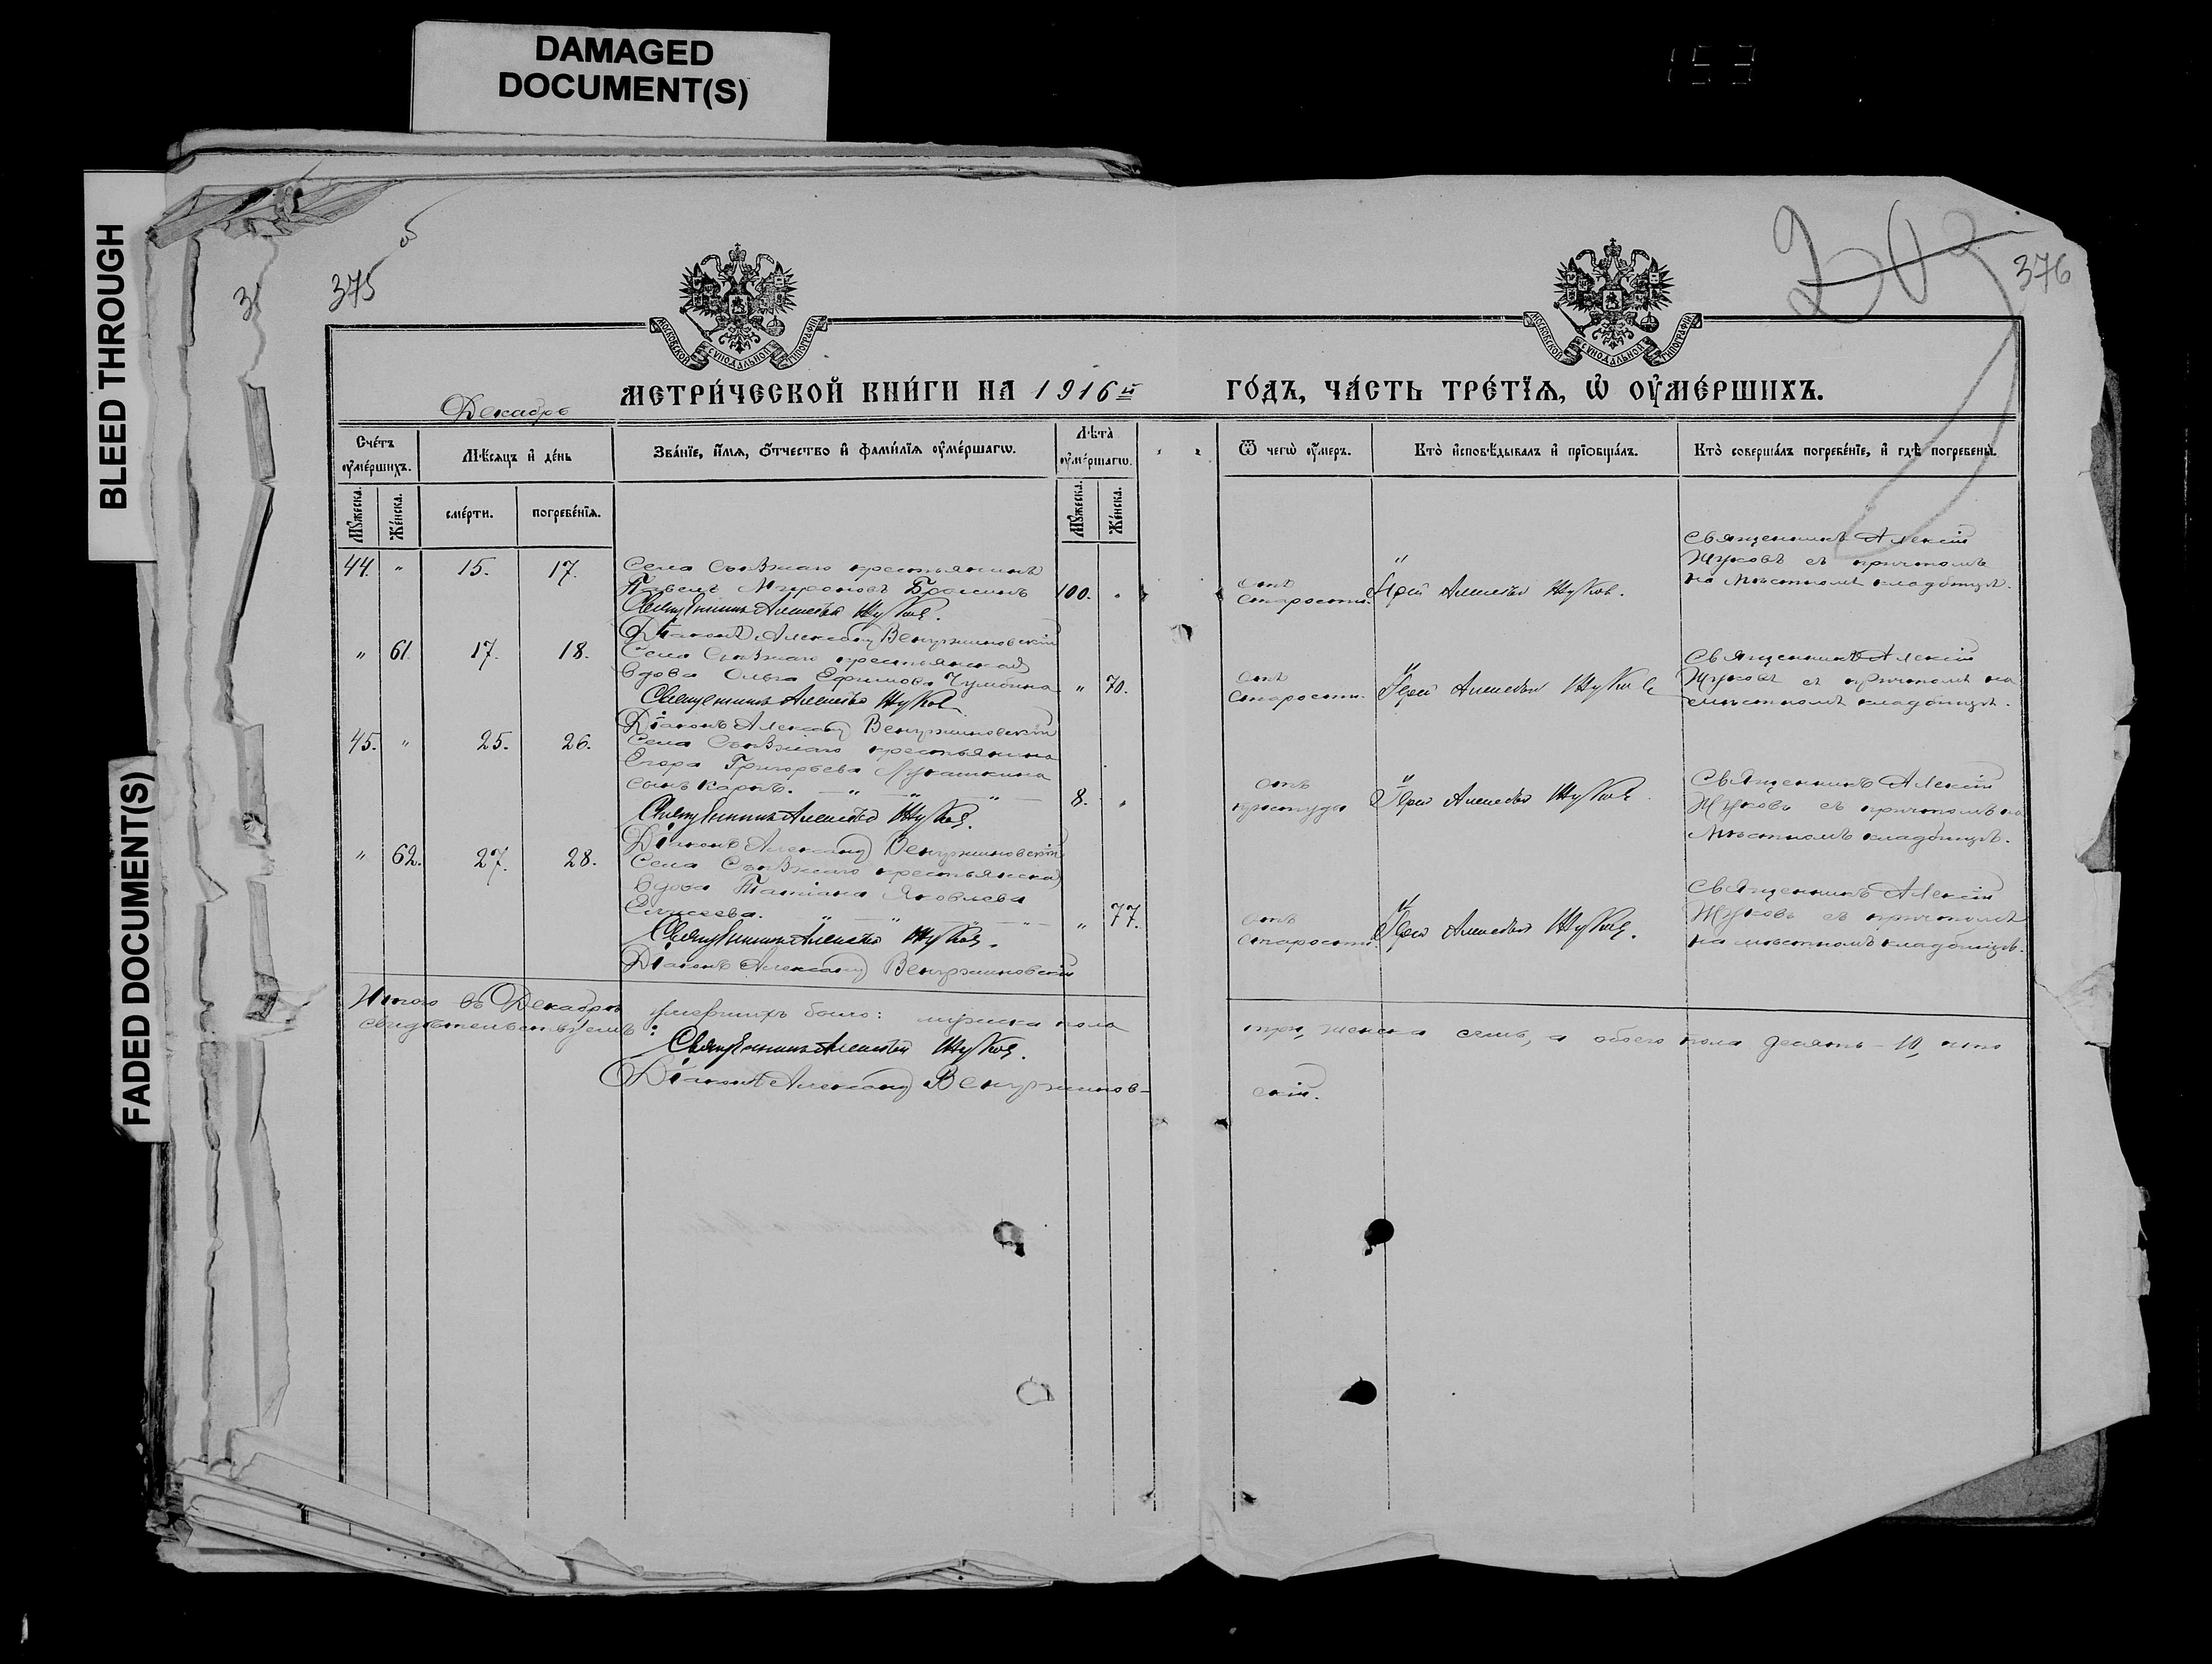 DAMAGED
DOCUMENT(S)
BLEED THROUGH
FADED DOCUMENT(S)
153
375
376
МОСКОВСКОЙ СѴНОДАЛЬНОЙ ТИПОГРАФІИ
МОСКОВСКОЙ СѴНОДАЛЬНОЙ ТИПОГРАФІИ
Декабрь
МЕТРИ́ЧЕСКОЙ КНИ́ГИ НА 1916й ГО́ДЪ, ЧА́СТЬ ТРЕ́ТЇѦ, Ѡ҆ ОУ҆МЕ́РШИХЪ.
Сче́тъ оу҆ме́ршихъ.
Мꙋ́жеска.
Же́нска.
Мѣ́сяцъ и҆ де́нь
сме́рти.
погребе́нїѧ.
Зва́нїе, и҆́мѧ, ѻ҆́тчество и҆ фами́лїѧ оу҆ме́ршагѡ.
Лѣ́та̀ оу҆ме́ршагѡ.
Мꙋ́жеска.
Же́нска.
Ѿ чегѡ̀ оу҆́меръ.
Кто̀ и҆сповѣ́дывалъ и҆ прїѡбща́лъ.
Кто̀ соверша́лъ погребе́нїе, и҆ гдѣ̀ погребены̀.
44. " 15. 17.
Села Съѣзжаго крестьянинъ
Мироновъ
100. "
Священникъ Алексѣй Жуковъ.
Діаконъ Александръ
отъ
старости.
Іерей Алексѣй Жуковъ.
Священникъ Алексій
Жуковъ съ причтомъ
на мѣстномъ кладбищѣ.
" 61. 17. 18.
Села Съѣзжаго крестьянская
вдова Ольга Ефимова
" 70.
Священникъ Алексѣй Жуковъ
Діаконъ Александръ
отъ
старости.
Іерей Алексѣй Жуковъ
Священникъ Алексій
Жуковъ съ причтомъ на
мѣстномъ кладбищѣ.
45. " 25. 26.
Села Съѣзжаго крестьянина
Егора Григорьева Лукашкина
сынъ Карпъ. — " — " — " —
8. "
Священникъ Алексѣй Жуковъ.
Діаконъ Александръ
отъ
простуды
Іерей Алексѣй Жуковъ
Священникъ Алексій
Жуковъ съ причтомъ на
мѣстномъ кладбищѣ.
" 62. 27. 28.
Села Съѣзжаго крестьянская
вдова Татіана Яковлева
Елисеева. — " — " — " —
" 77.
Священникъ Алексѣй Жуковъ.
Діаконъ Александръ
отъ
старости.
Іерей Алексѣй Жуковъ.
Священникъ Алексій
Жуковъ съ причтомъ
на мѣстномъ кладбищѣ.
Итого въ Декабрѣ умершихъ было: мужска пола три, женска семь, а обоего пола десять — 10, что
свидѣтельствуемъ:
Священникъ Алексѣй Жуковъ.
Діаконъ Александръ
скій.